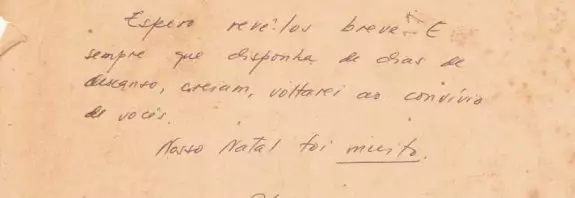 Espero revê-los breve. E
sempre que disponha de dias de
descanso, creiam, voltarei ao convívio
de vocês.
Nosso Natal foi muito.